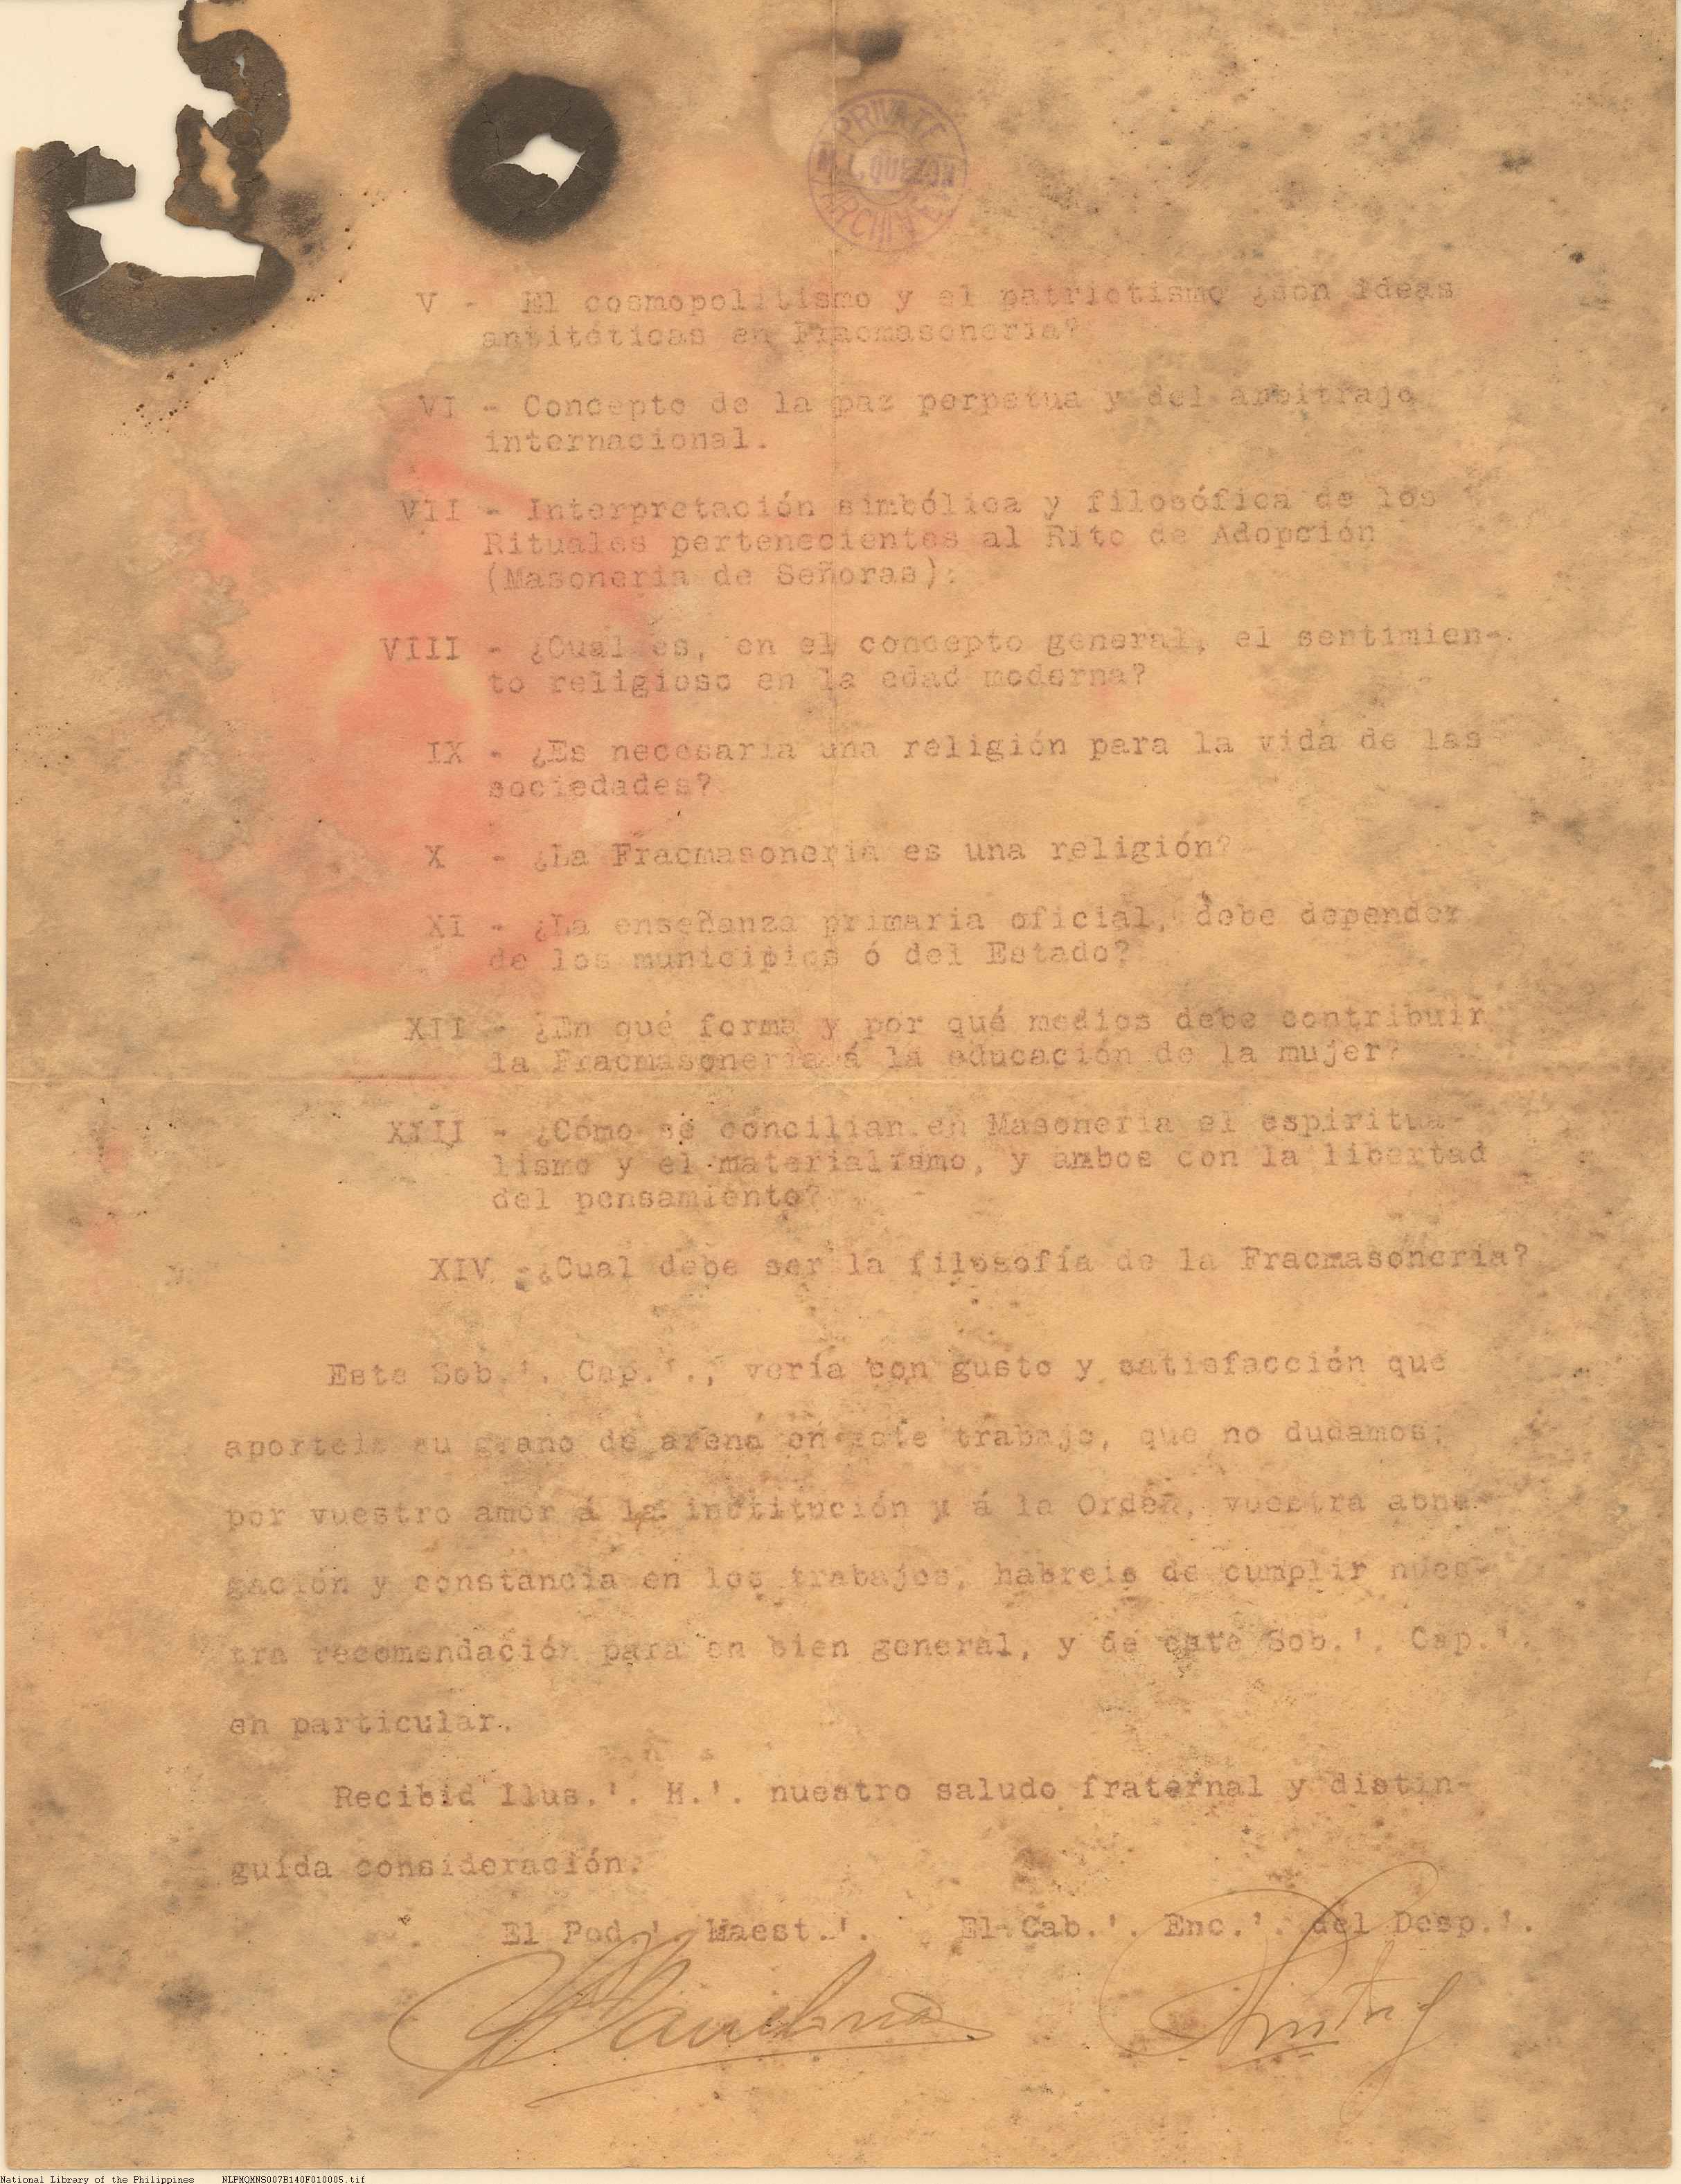 PRIVATE
M. L. QUEZON
ARCHIVES
V - El cosmopolitismo y el patriotismo ¿son ideas
antitéticas en Fracmasoneria?
VI - Concepto de la paz perpetua y del arbitraje
internacional.
VII - Interpretación simbólica y filosófica de los
Rituales pertenecientes al Rito de Adopción
(Masoneria de Señoras).
VIII - ¿Cual es, en el concepto general, el sentimien-
to religioso en la edad moderna?
IX - ¿Es necesaria una religión para la vida de las
sociedades?
X - ¿La Fracmasoneria es una religión?
XI - ¿La enseñanza primaria oficial, debe depender
de los municipios ó del Estado?
XII - ¿En qué forma y por qué medios debe contribuir
la Fracmasoneria á la educación de la mujer?
XIII - ¿Cómo se concilian en Masoneria el espiritua-
lismo y el materialismo, y ambos con la libertad
del pensamiento?
XIV - ¿Cual debe ser la filosofía de la Fracmasoneria?
Este Sob.'. Cap.'., vería con gusto y satisfacción que
aporteis su grano de arena en este trabajo, que no dudamos,
por vuestro amor á la institución y á la Orden, vuestra abne-
gación y constancia en los trabajos, habreis de cumplir nues-
tra recomendación para en bien general, y de este Sob.'. Cap.'.
en particular.
Recibid Ilus.'. H.'. nuestro saludo fraternal y distin-
guida consideración.
El Pod.'. Maest.'. El Cab.'. Enc.'. del Desp.'.
National Library of the Philippines NLPMQMNS007B140F010005.tif